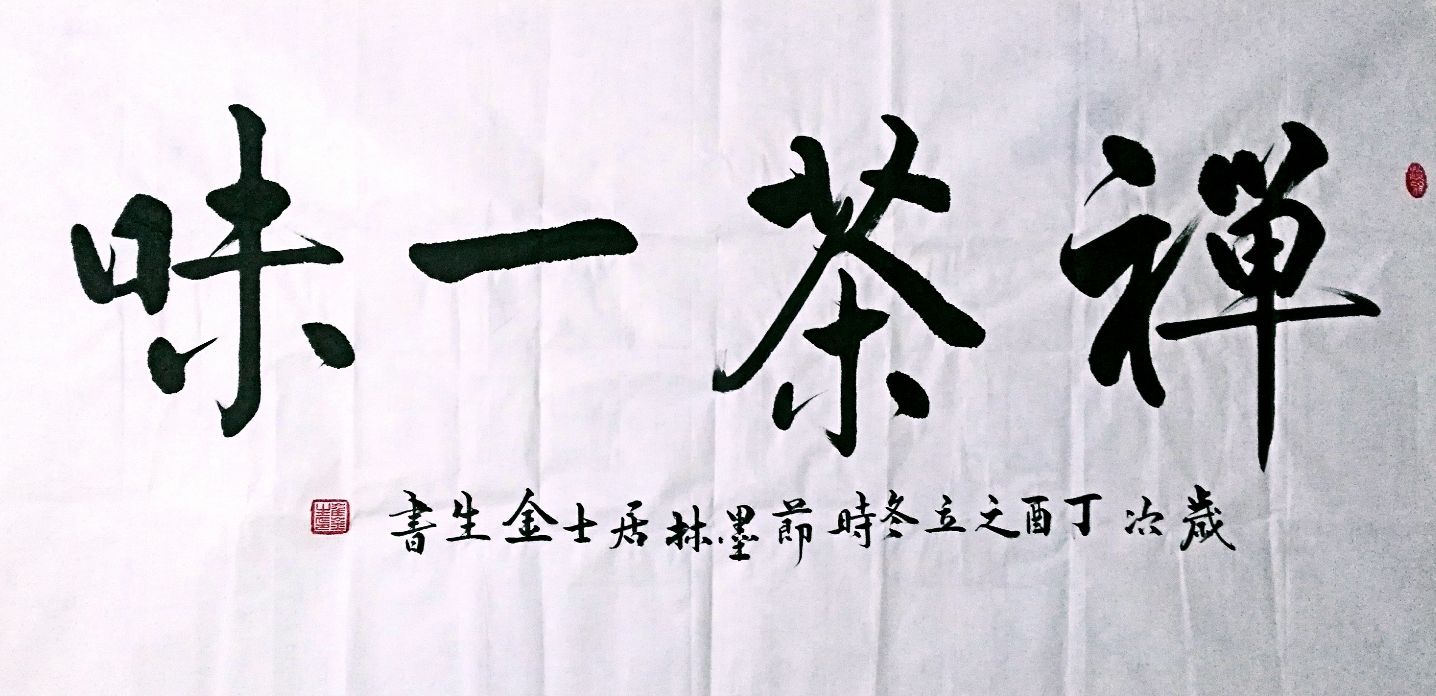 禪茶一味
歲次丁酉之立冬時節墨林居士金生書